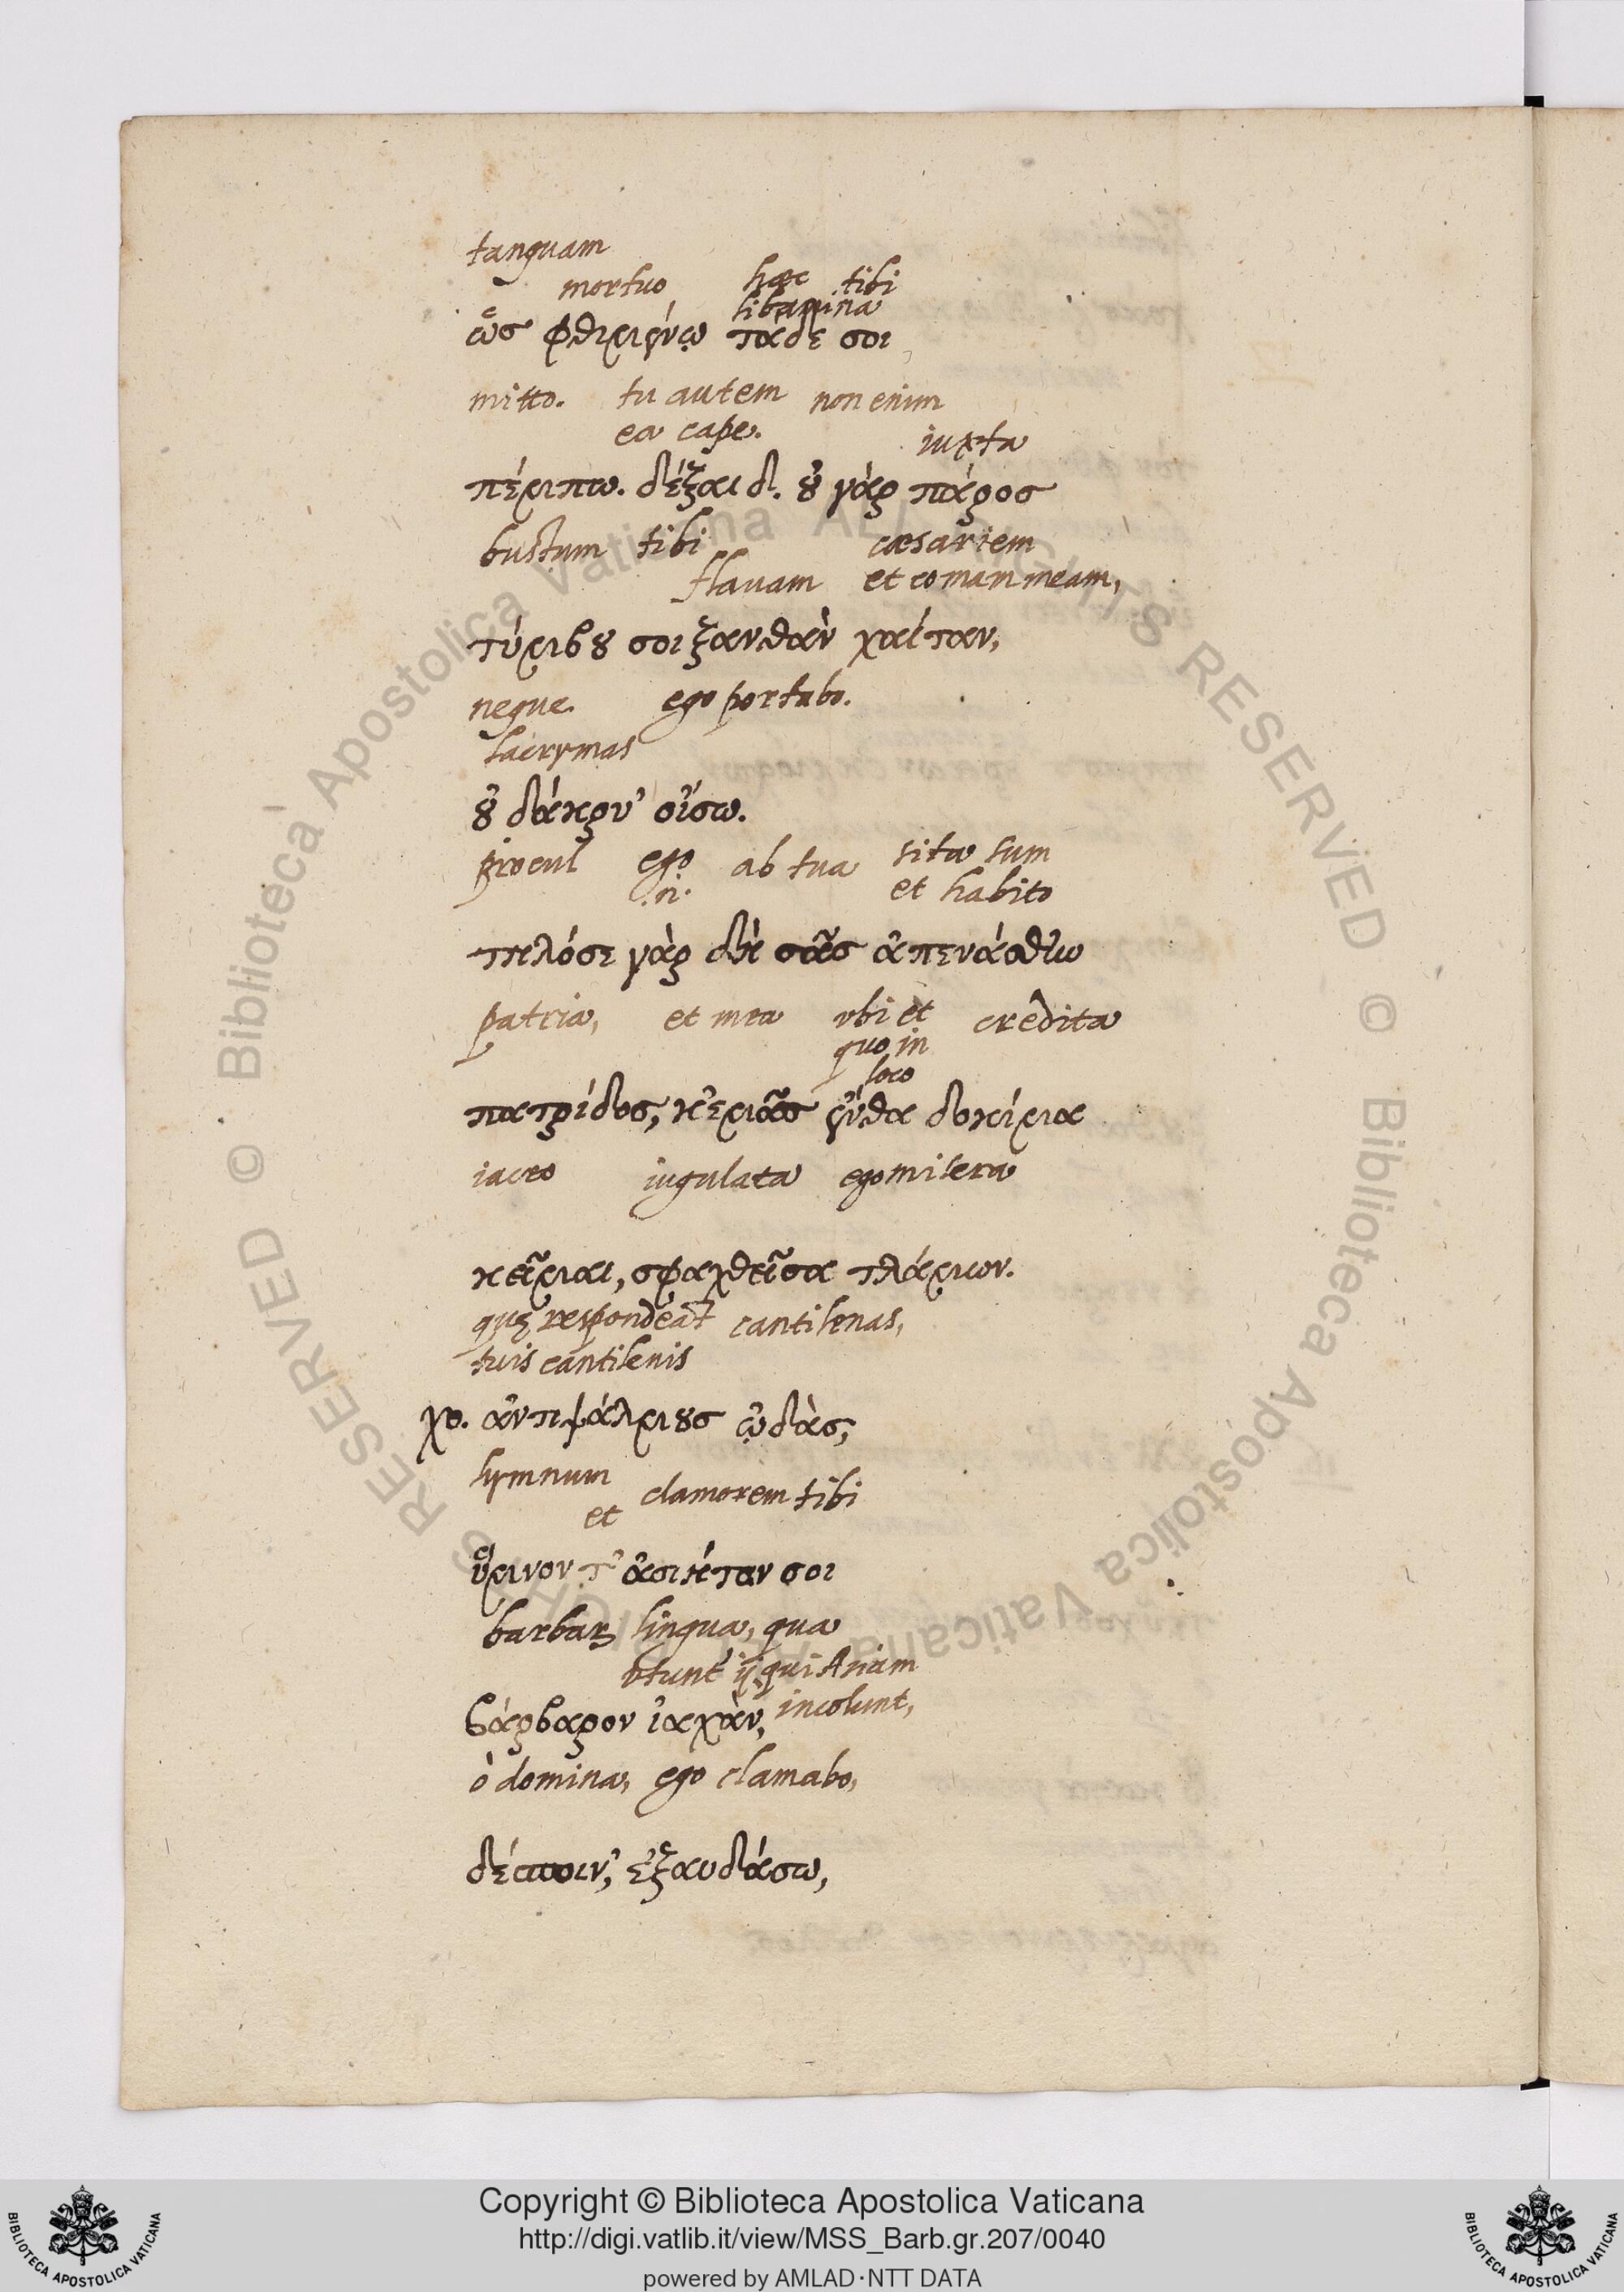 tanquam
mortuo hæc tibi
libamina
ὡς φθιμένῳ τάδε σοι
mitto. tu autem non enim
ea cape. iuxta
πέμπω. δέξαι δ'. οὐ γὰρ πάρος
bustum tibi cæsariem
flauam et comam meam,
τύμβου σοι ξανθὰν χαίταν,
neque ego portabo.
lacrymas
οὐ δάκρυ' οἴσω.
procul ego ab tua sita sum
.n. et habito
τηλόσε γὰρ δὴ σᾶς ἀπενάσθην
patria, et mea vbi et credita
quo in
loco
πατρίδος, κ' ἐμᾶς ἔνθα δοκίμα
iaceo iugulata ego misera
κεῖμαι, σφαχθεῖσα τλάμων.
quę respondeāt cantilenas,
tuis cantilenis
χο. ἀντιψάλμους ᾠδὰς,
hymnum clamorem tibi
et
ὕμνον τ' ἀσιήταν σοι
barbarę lingua, qua
vtunt' ij qui Asiam
incolunt,
βάρβαρον ἰαχὰν,
ò domina, ego clamabo,
δέσποιν', ἐξαυδάσω,
Copyright © Biblioteca Apostolica Vaticana
http://digi.vatlib.it/view/MSS_Barb.gr.207/0040
powered by AMLAD·NTT DATA
BIBLIOTECA APOSTOLICA VATICANA
BIBLIOTECA APOSTOLICA VATICANA
© Biblioteca Apostolica Vaticana ALL RIGHTS RESERVED © Biblioteca Apostolica Vaticana ALL RIGHTS RESERVED